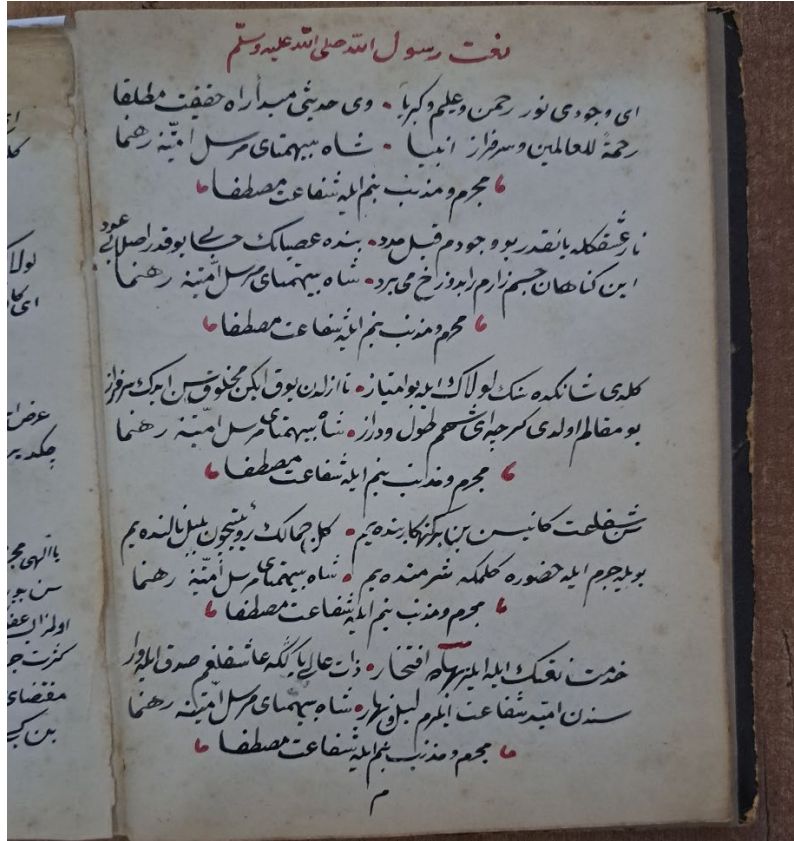 نعت رسول الله صلی الله علیه وسلم
ای وجودی نور رحمن وعلیم وکبریا • وی حدیثی مبدأ راه حقیقت مطلقا
رحمة للعالمین وسرفراز انبیا • شاه بیهمتای مرسل امتیڭه رهنما
مجرم ومذنب بنم ایله شفاعت مصطفا
نار عشقکله یانقدر بو وجودم قبل مدد • بنده عصیانک حسابی بوقدر اصلا عدد
این کناهان جسم زارم را بدوزخ می برد • شاه بیهمتای مرسل امتیڭه رهنما
مجرم ومذنب بنم ایله شفاعت مصطفا
کلدی شانکده سنک لولاک ایله بو امتیاز • تا ازلدن یوق ایکن مخلوق سن ایدک سرفراز
بو مقالم اولدی کرچه ای شهم طول ودراز • شاه بیهمتای مرسل امتیڭه رهنما
مجرم ومذنب بنم ایله شفاعت مصطفا
سن شفاعت کانیسن بن بر کنهکار بنده یم • کل جمالک رؤیتیچون بلبل نالنده یم
بویله جرم ایله حضوره کلمکه شرمنده یم • شاه بیهمتای مرسل امتیڭه رهنما
مجرم ومذنب بنم ایله شفاعت مصطفا
خدمت نعتک ایله ایلر افتخار • ذات عالی عاشقلغم صدق ایله وار
سندن امید شفاعت ایلرم لیل ونهار • شاه بیهمتای مرسل امتیڭه رهنما
مجرم ومذنب بنم ایله شفاعت مصطفا
م